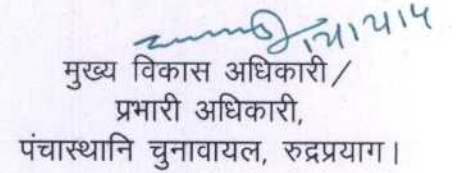 मुख्य विकास अधिकारी/
प्रभारी अधिकारी,
पंचास्थानि चुनावायल, रुद्रप्रयाग।